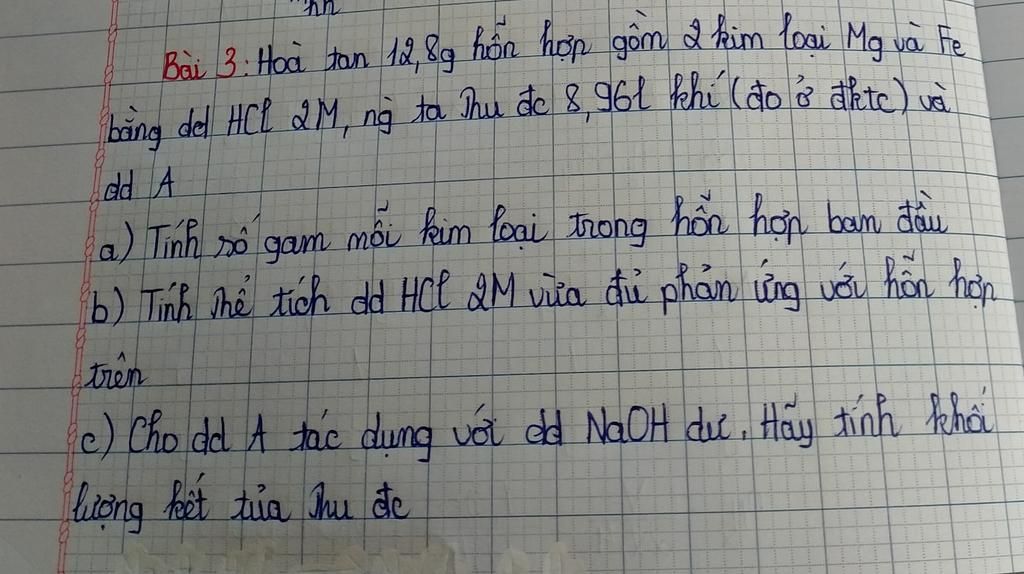 Bài 3: Hoà tan 12,8g hỗn hợp gồm 2 kim loại Mg và Fe
bằng dd HCl 2M, ng ta thu đc 8,96l khí (đo ở đktc) và
dd A
a) Tính số gam mỗi kim loại trong hỗn hợp ban đầu
b) Tính thể tích dd HCl 2M vừa đủ phản ứng với hỗn hợp
trên
c) Cho dd A tác dụng với dd NaOH dư. Hãy tính khối
lượng kết tủa thu đc